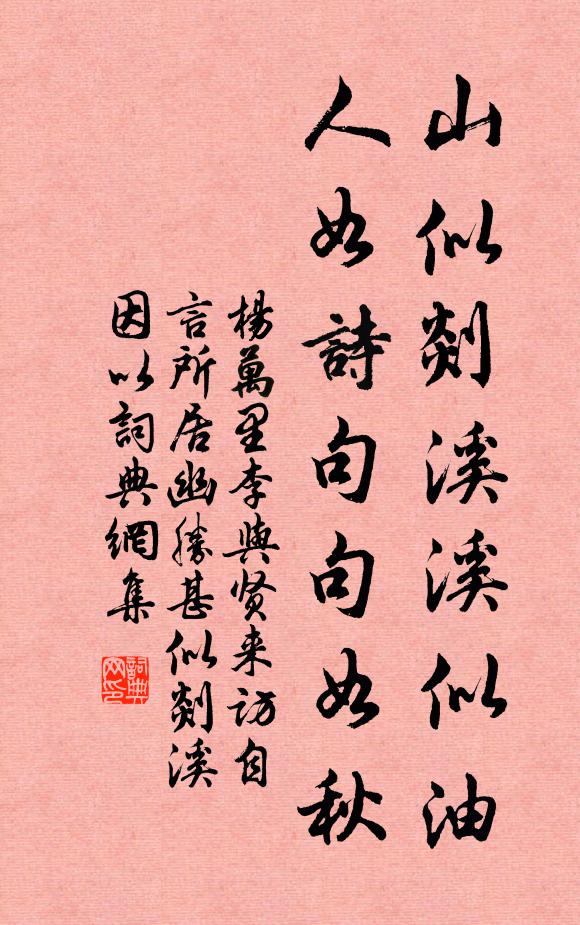 山似剡溪溪似油
人如詩句句如秋
楊萬里李與贤来访自
言所居幽勝甚似剡溪
因以詞典網集
詞典
网印